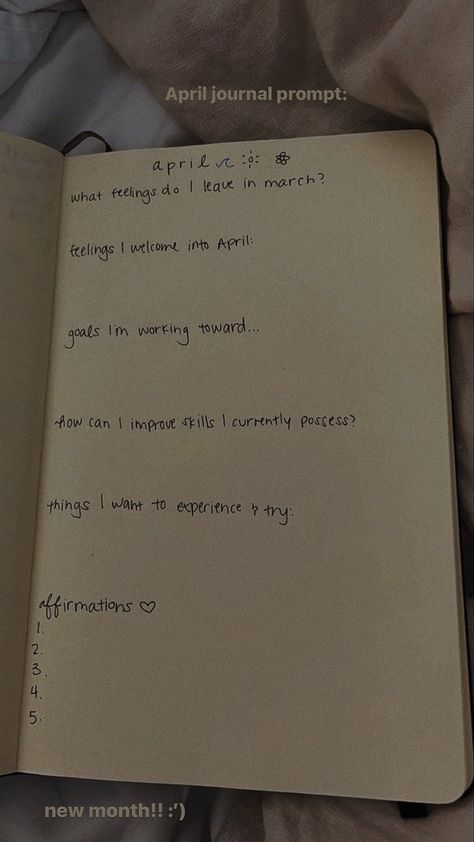 April journal prompt:
april
what feelings do I leave in march?
feelings I welcome into April:
goals I'm working toward...
How can I improve skills I currently possess?
things I want to experience & try:
affirmations ♡
1.
2.
3.
4.
5.
new month!! :')